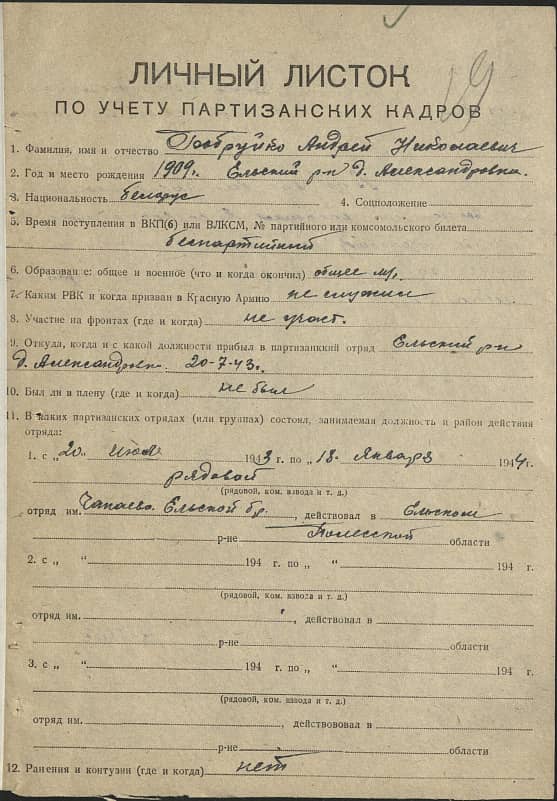 19
ЛИЧНЫЙ ЛИСТОК
ПО УЧЕТУ ПАРТИЗАНСКИХ КАДРОВ
1. Фамилия, имя и отчество Андрей Николаевич
2. Год и место рождения 1909г. Ельский р-н д. Александровка.
3. Национальность белорус 4. Соцположение
5. Время поступления в ВКП(б) или ВЛКСМ, № партийного или комсомольского билета
беспартийный
6. Образование: общее и военное (что и когда окончил) общее
7. Каким РВК и когда призван в Красную Армию не служил
8. Участие на фронтах (где и когда) не участ.
9. Откуда, когда и с какой должности прибыл в партизанккий отряд Ельский р-н
д. Александровка 20-7-43г.
10. Был ли в плену (где и когда) не был
11. В каких партизанских отрядах (или группах) состоял, занимаемая должность и район действия
отряда:
1. с „20. июля 1943 г. по „18. Января 1944г.
рядовой
(рядовой, ком. взвода и т. д.)
отряд им. Чапаева Ельской бр., действовал в Ельском
р-не Полесской области
2. с „ “ 194 г. по „ “ 194 г.
(рядовой, ком. взвода и т. д.)
отряд им. , действовал в
р-не области
3. с „ “ 194 г. по „ “ 194 г.
(рядовой, ком. взвода и т. д.)
отряд им. , действововал в
р-не области
12. Ранения и контузии (где и когда) нет